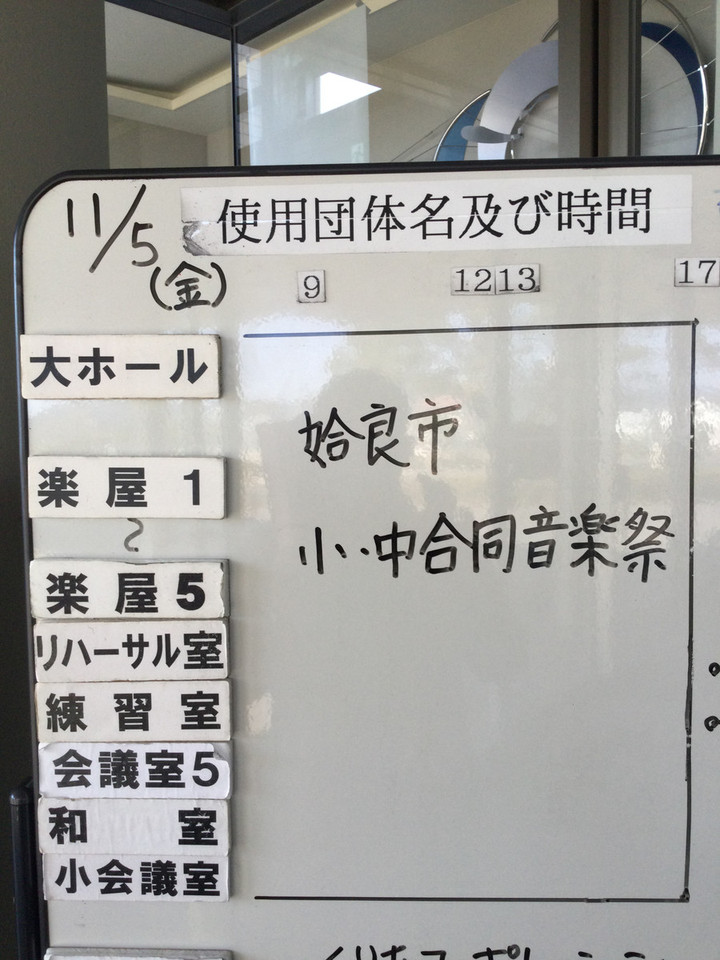 11/5 使用団体名及び時間
(金)
9 12 13 17
大ホール
姶良市
楽屋 1
〜
小・中合同音楽祭
楽屋 5
リハーサル室
練習室
会議室5
和室
小会議室